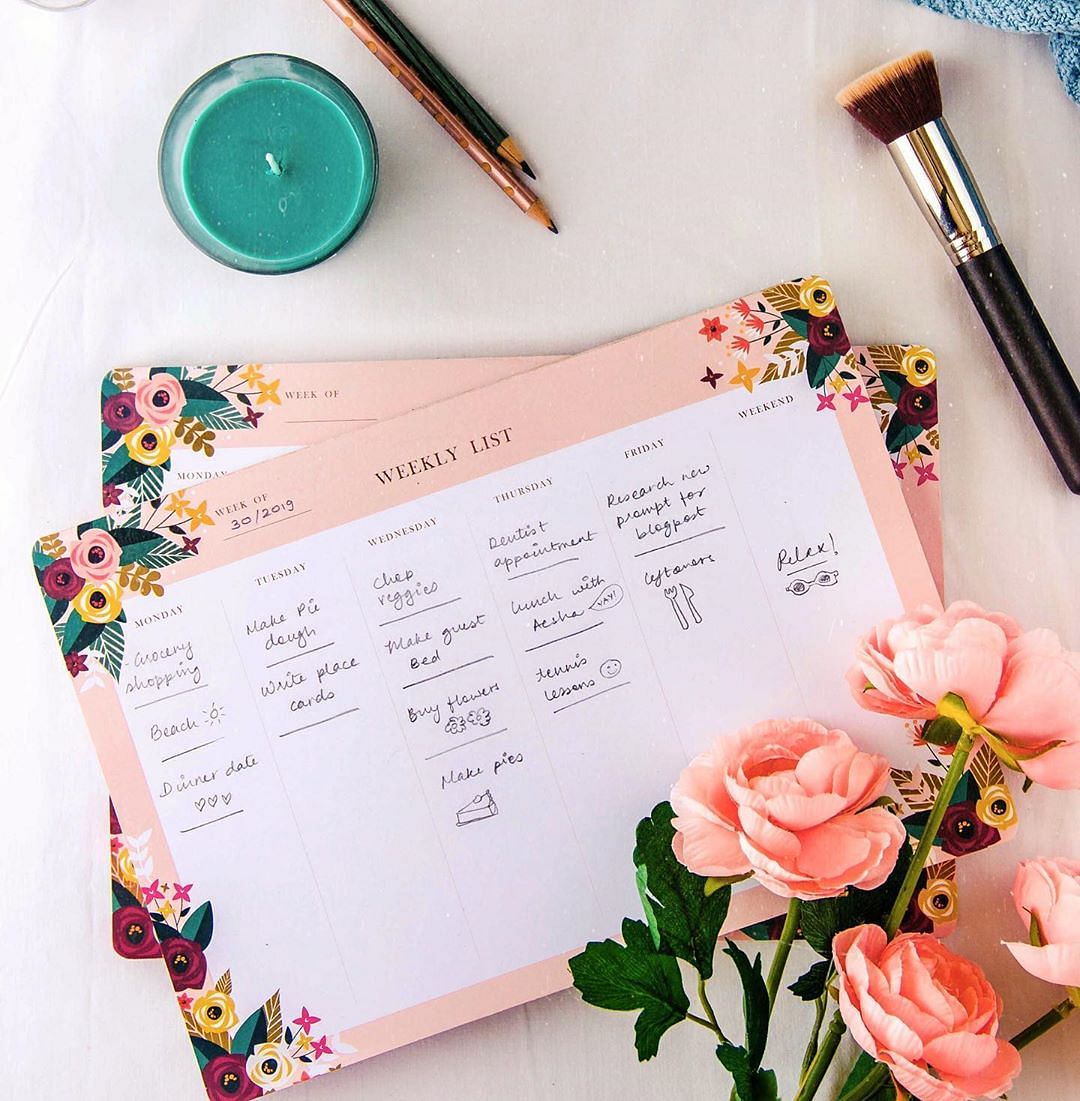 WEEK OF
MONDAY
WEEKLY LIST
WEEK OF
30/2019
MONDAY
Grocery
shopping
Beach
Dinner date
TUESDAY
Make Pie
dough
Write place
cards
WEDNESDAY
Chop
veggies
Make guest
Bed
Buy flowers
Make pies
THURSDAY
Dentist
appointment
lunch with
Aesha
YAY!
tennis
lessons
FRIDAY
Research new
prompt for
blogpost
leftovers
WEEKEND
Relax!